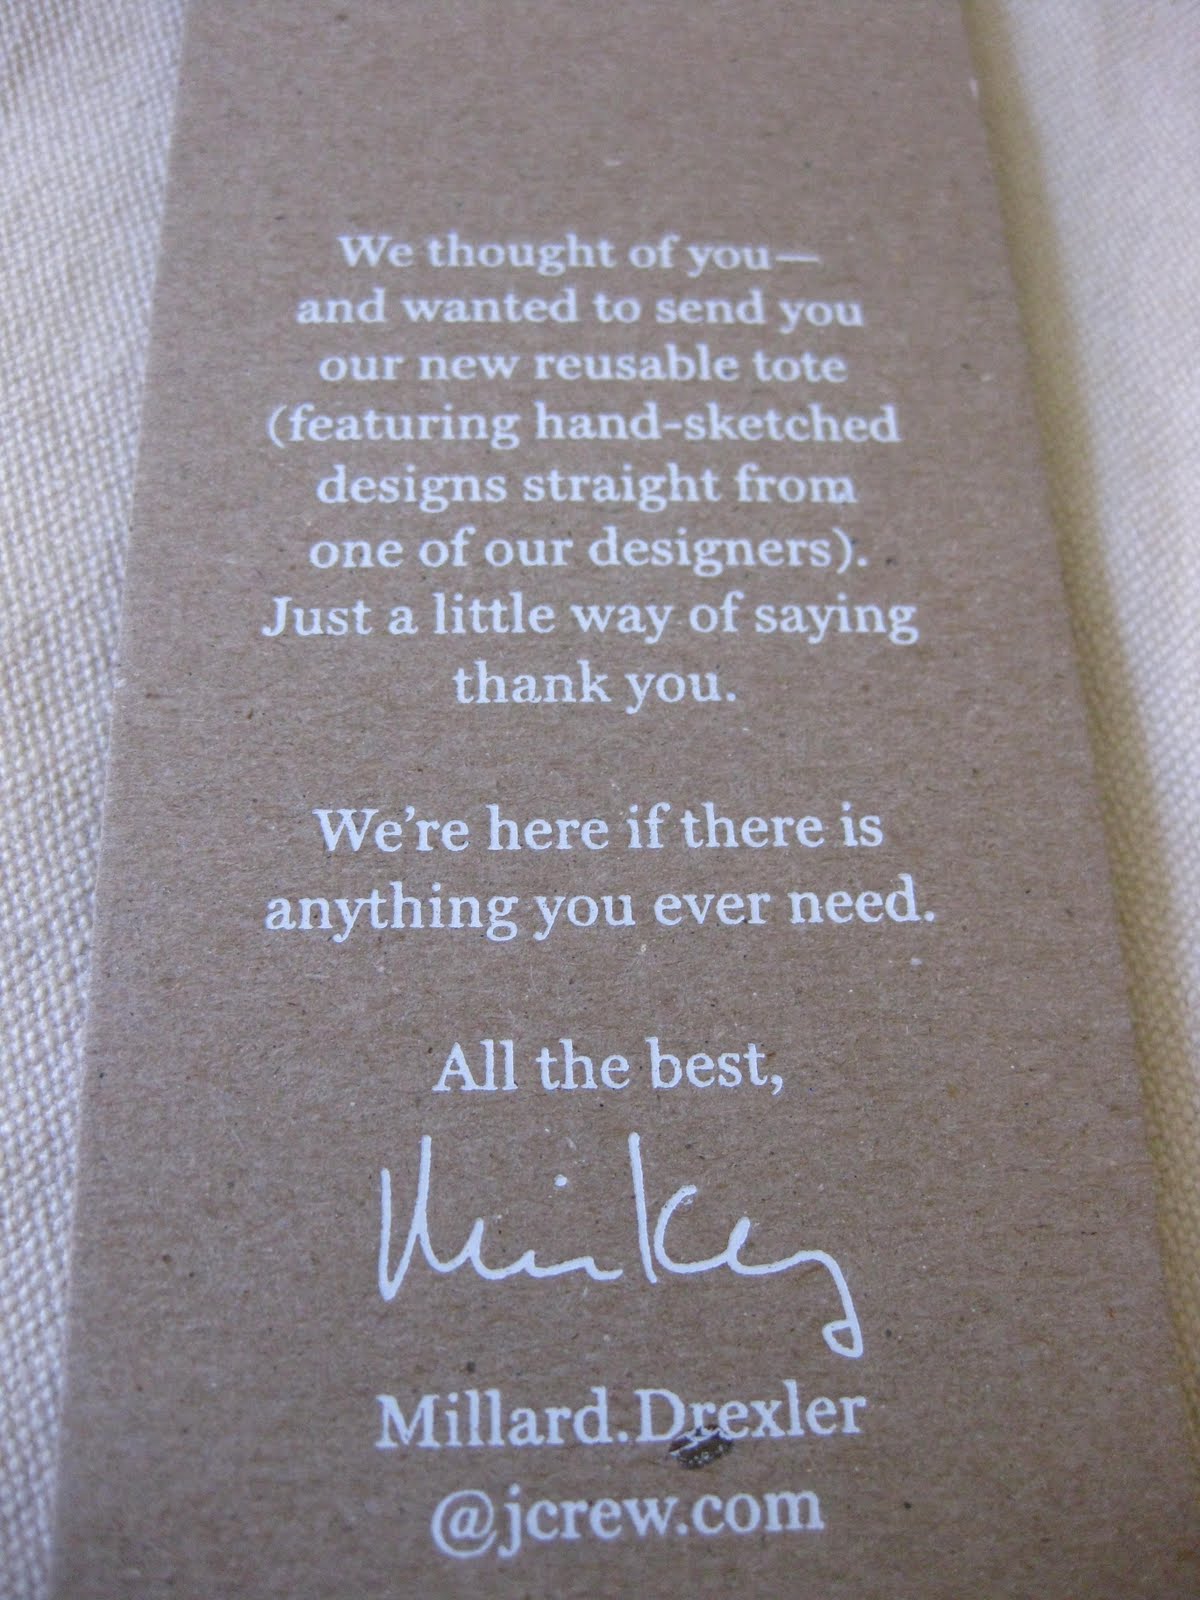 We thought of you—
and wanted to send you
our new reusable tote
(featuring hand-sketched
designs straight from
one of our designers).
Just a little way of saying
thank you.
We're here if there is
anything you ever need.
All the best,
Mickey
Millard.Drexler
@jcrew.com